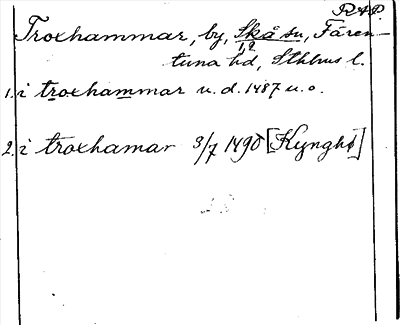 RAP.
Troxhammar, by, Skå sn, Fären-
1,2
tuna hd, Sthlms l.
1. i troxhammar u.d. 1487 u.o.
2. i troxhamar 3/7 1490 [Kynghø]